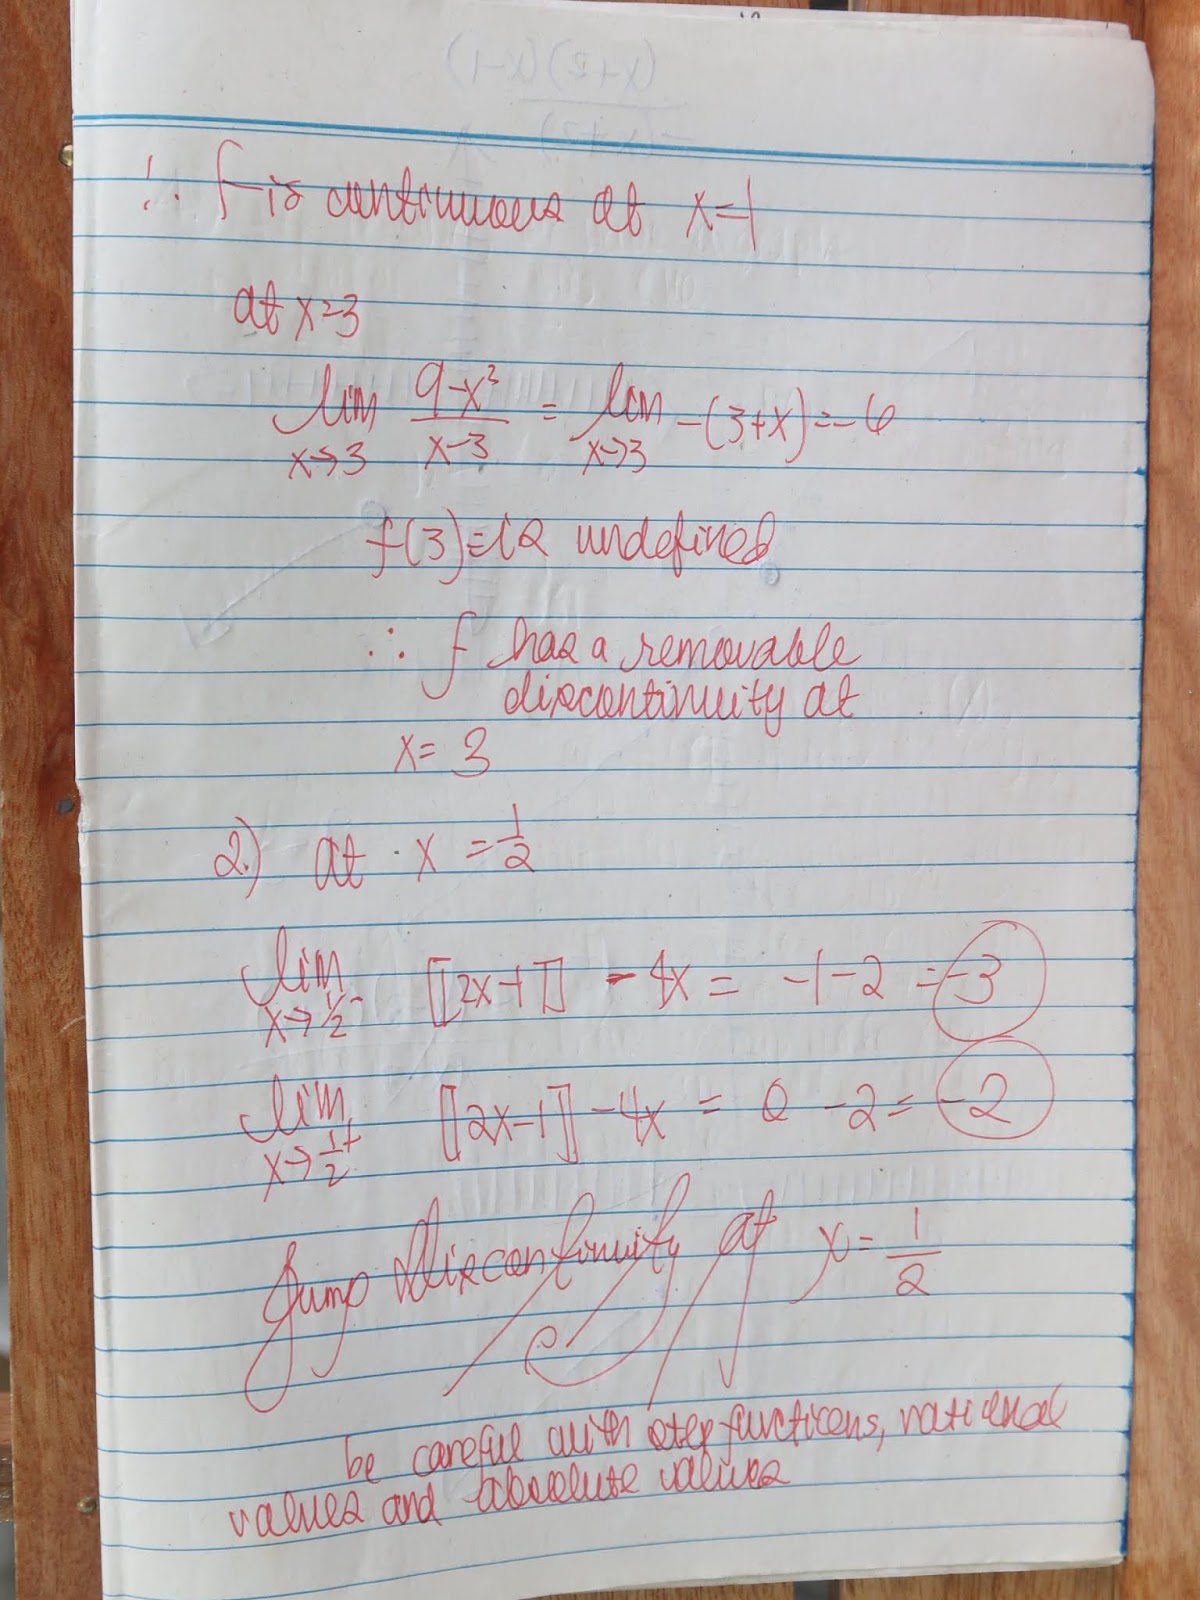 ∴ f is continuous at x=1
at x=3
lim x→3 9-x²/x-3 = lim x→3 -(3+x)=-6
f(3)=is undefined
∴ f has a removable
discontinuity at
x= 3
2.) at x = 1/2
lim x→1/2⁻ [[2x-1]] - 4x = -1-2 = -3
lim x→1/2⁺ [[2x-1]] -4x = 0 -2 = -2
Jump Discontinuity at x= 1/2
be careful with step functions, rational
values and absolute values